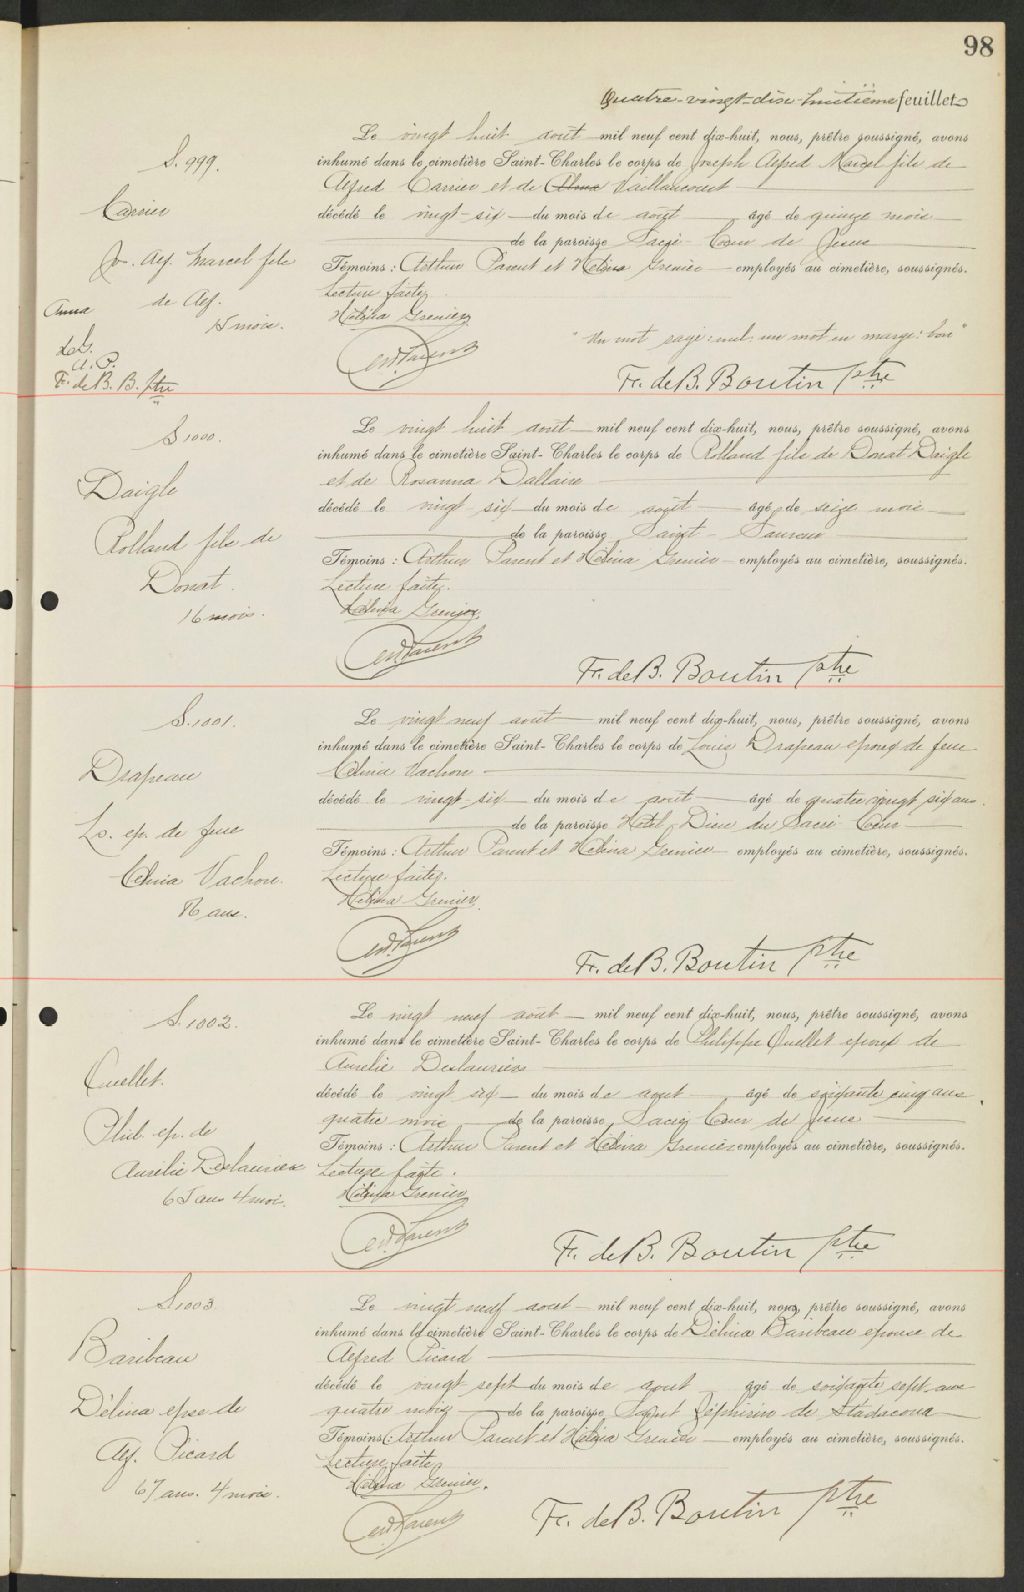 98
Quatre-vingt-dix-huitième feuillet
S. 999.
Carrier
Jos. Alf. Marcel fils
de Alf.
15 mois.
Anna
A. P.
F. de B. B. ptre
Le vingt huit août mil neuf cent dix-huit, nous, prêtre soussigné, avons
inhumé dans le cimetière Saint-Charles le corps de Joseph Alfred Marcel fils de
Alfred Carrier et de Alma Vaillancourt
décédé le vingt-six du mois de août âgé de quinze mois
de la paroisse Sacré-Cœur de Jésus
Témoins : Arthur Parent et Hélina Grenier employés au cimetière, soussignés.
Lecture faite.
Hélina Grenier
Art. Parent
"Un mot rayé: nul. un mot en marge: bon"
Fr. de B. Boutin ptre
S 1000.
Daigle
Rolland fils de
Donat
16 mois.
Le vingt huit août mil neuf cent dix-huit, nous, prêtre soussigné, avons
inhumé dans le cimetière Saint-Charles le corps de Rolland fils de Donat Daigle
et de Rosanna Dallaire
décédé le vingt-six du mois de août âgé de seize mois
de la paroisse Saint-Sauveur
Témoins : Arthur Parent et Hélina Grenier employés au cimetière, soussignés.
Lecture faite.
Hélina Grenier
Art. Parent
Fr. de B. Boutin ptre
S. 1001.
Drapeau
Ls. ep. de feue
Célina Vachon.
86 ans.
Le vingt neuf août mil neuf cent dix-huit, nous, prêtre soussigné, avons
inhumé dans le cimetière Saint-Charles le corps de Louis Drapeau époux de feue
Célina Vachon
décédé le vingt-six du mois de août âgé de quatre vingt six ans.
de la paroisse Hôtel-Dieu du Sacré-Cœur
Témoins : Arthur Parent et Hélina Grenier employés au cimetière, soussignés.
Lecture faite.
Hélina Grenier
Art. Parent
Fr. de B. Boutin ptre
S. 1002.
Ouellet.
Phil. ep. de
Aurélie Deslauriers
65 ans 4 mois.
Le vingt neuf août mil neuf cent dix-huit, nous, prêtre soussigné, avons
inhumé dans le cimetière Saint-Charles le corps de Philippe Ouellet époux de
Aurélie Deslauriers
décédé le vingt six du mois de août âgé de soixante cinq ans
quatre mois de la paroisse Sacré Cœur de Jésus
Témoins : Arthur Parent et Hélina Grenier employés au cimetière, soussignés.
Lecture faite.
Hélina Grenier
Art. Parent
Fr. de B. Boutin ptre
S. 1003.
Baribeau
Délina epse de
Alf. Picard
67 ans. 4 mois.
Le vingt neuf août mil neuf cent dix-huit, nous, prêtre soussigné, avons
inhumé dans le cimetière Saint-Charles le corps de Délina Baribeau épouse de
Alfred Picard
décédé le vingt-sept du mois de août âgé de soixante sept ans
quatre mois de la paroisse Saint Zéphirin de Stadacona
Témoins : Arthur Parent et Hélina Grenier employés au cimetière, soussignés.
Lecture faite.
Hélina Grenier.
Art. Parent
Fr. de B. Boutin ptre